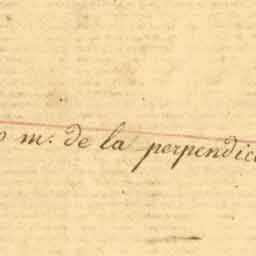 m. de la perpendic